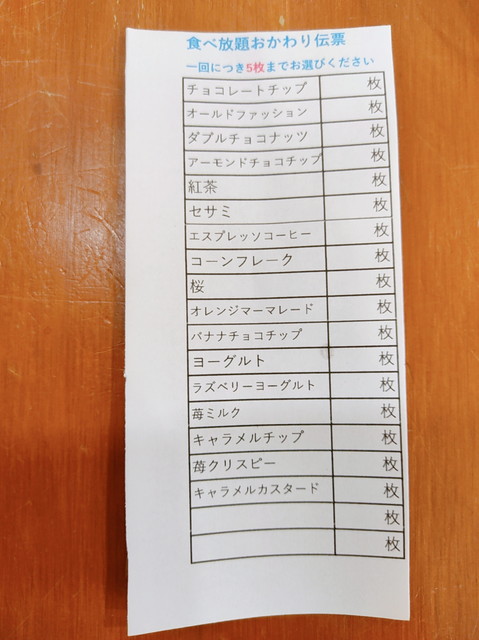 食べ放題おかわり伝票
一回につき5枚までお選びください
チョコレートチップ 枚
オールドファッション 枚
ダブルチョコナッツ 枚
アーモンドチョコチップ 枚
紅茶 枚
セサミ 枚
エスプレッソコーヒー 枚
コーンフレーク 枚
桜 枚
オレンジマーマレード 枚
バナナチョコチップ 枚
ヨーグルト 枚
ラズベリーヨーグルト 枚
苺ミルク 枚
キャラメルチップ 枚
苺クリスピー 枚
キャラメルカスタード 枚
枚
枚